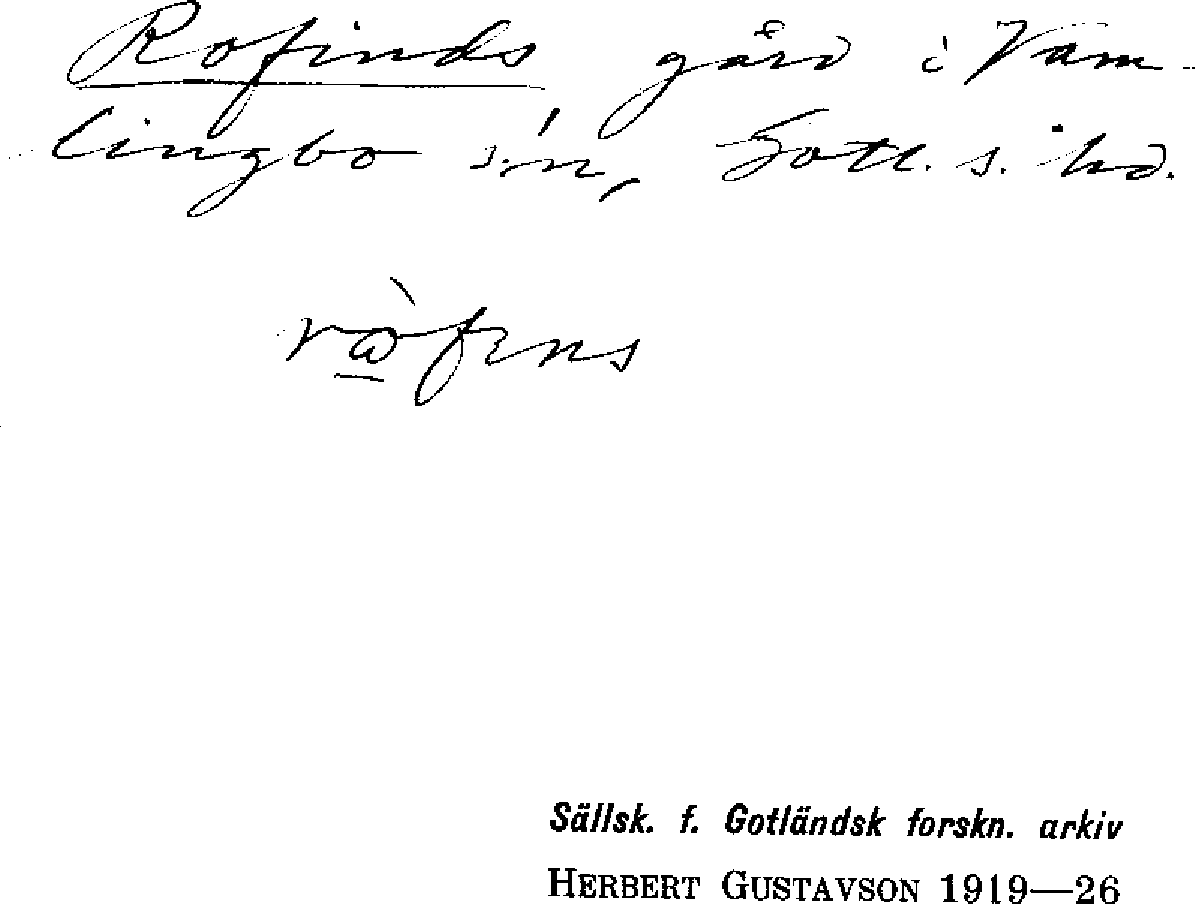 Rofinds gård i Vam-
lingbo s:n, Gotl. s. hd.
ràfins
Sällsk. f. Gotländsk forskn. arkiv
HERBERT GUSTAVSON 1919—26